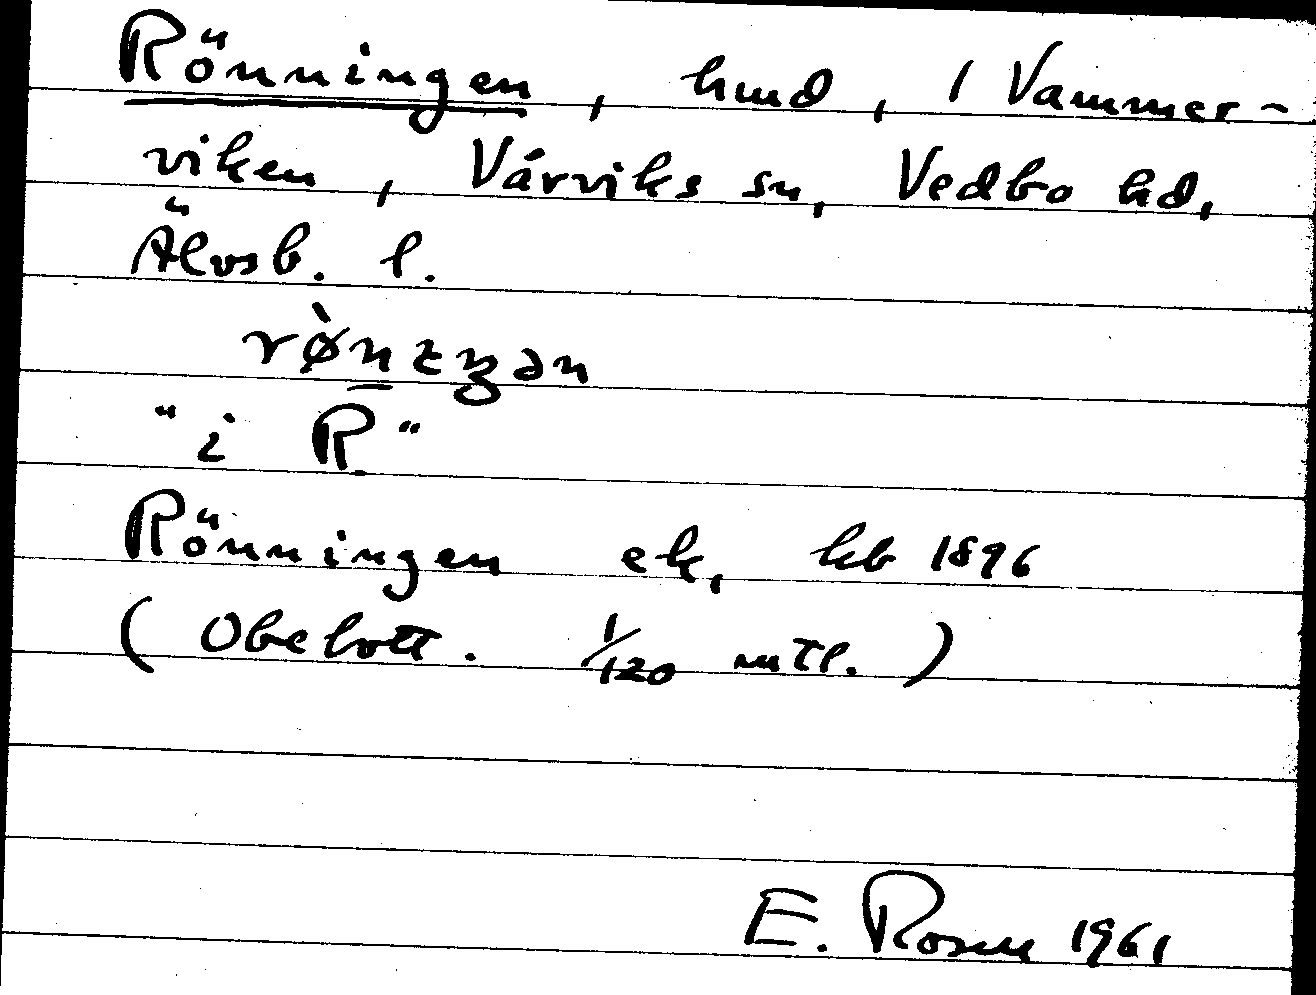 Rönningen, hmd, 1 Vammer-
viken, Vårviks sn, Vedbo hd,
Älvsb. l.
"i R."
Rönningen ek, kb 1896
(Obebott. 1/120 mtl.)
E. Rosen 1961